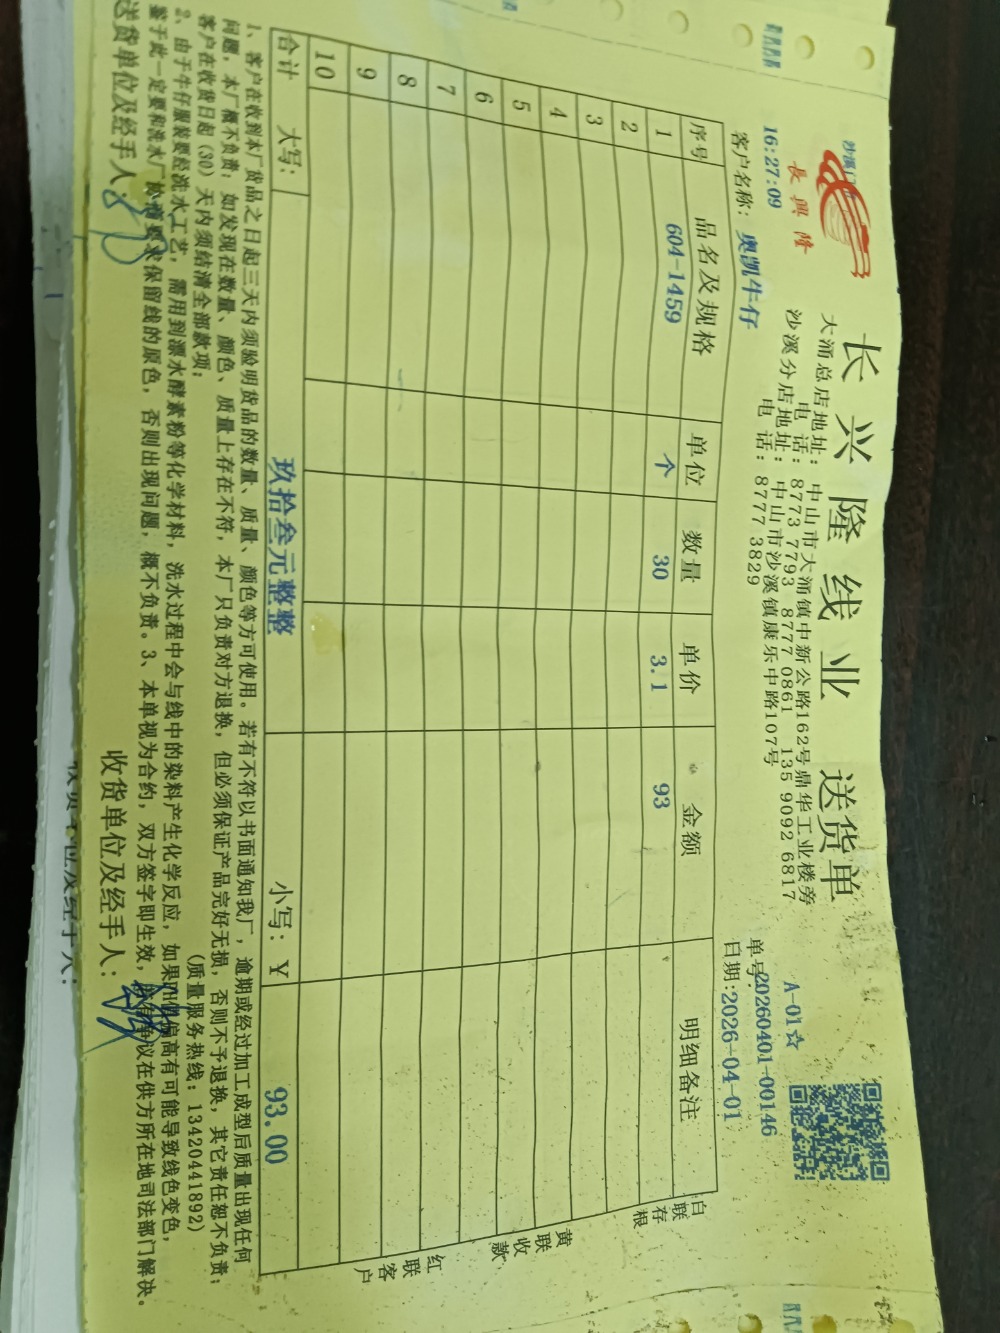 長興隆
长兴隆线业 送货单
大涌总店地址：中山市大涌镇中新公路162号鼎华工业楼旁
电 话：8773 7793 8777 0861 135 9092 6817
沙溪分店地址：中山市沙溪镇康乐中路107号
电 话：8777 3829
A-01☆
16:27:09
单号：20260401-00146
客户名称：奥凯牛仔
日期：2026-04-01
序号 品名及规格 单位 数量 单价 金额 明细备注
1 604-1459 个 30 3.1 93
2
3
4
5
6
7
8
9
10
合计 大写： 玖拾叁元整整 小写：￥ 93.00
白联存根
黄联收款
红联客户
1、客户在收到本厂货品之日起三天内须验明货品的数量、质量、颜色等方可使用。若有不符以书面通知我厂，逾期或经过加工成型后质量出现任何
问题，本厂概不负责；如发现在数量、颜色、质量上存在不符，本厂只负责对方退换，但必须保证产品完好无损，否则不予退换，其它责任恕不负责；
客户在收货日起（30）天内须结清全部款项； （质量服务热线：13420441892）
2、由于牛仔服装要经洗水工艺，需用到漂水酵素粉等化学材料，洗水过程中会与线中的染料产生化学反应，如果 偏高有可能导致线色变色，
鉴于此一定要和洗水厂 要求保留线的原色，否则出现问题，概不负责。3、本单视为合约，双方签字即生效， 争议在供方所在地司法部门解决。
送货单位及经手人： 收货单位及经手人：